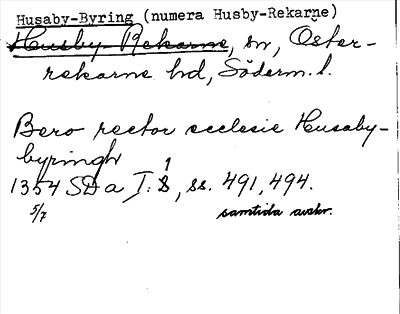 Husaby-Byring (numera Husby-Rekarne)
Husby-Rekarne, sn, Öster-
rekarne hd, Söderm. l.
Bero rector ecclesie Husaby-
byringh
1354 SD a I: 1, ss. 491, 494.
5/7 samtida avskr.